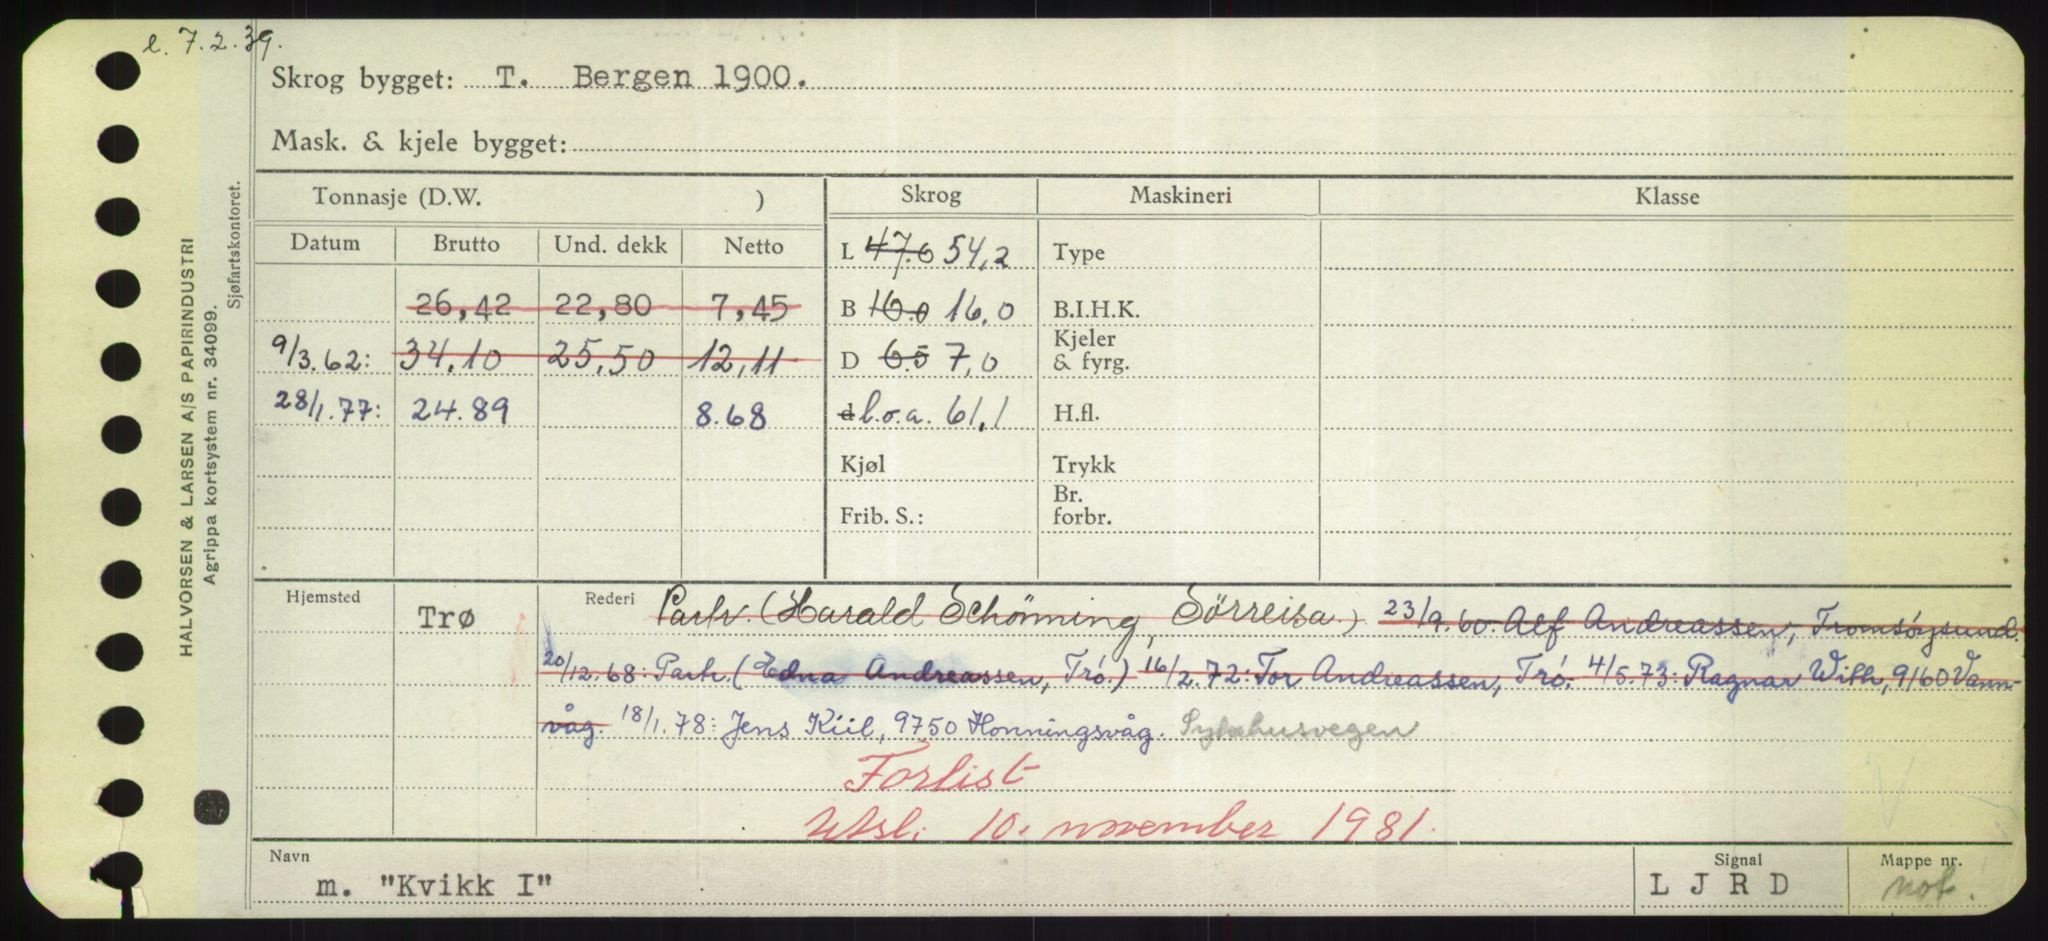 e. 7.2.39.
Skrog bygget: T. Bergen 1900.
Mask. & kjele bygget:
HALVORSEN & LARSEN A/S PAPIRINDUSTRI
Agrippa kortsystem nr. 34099.
Sjøfartskontoret.
Tonnasje (D.W. ) Skrog Maskineri Klasse
Datum Brutto Und. dekk Netto L 47.0 54,2 Type
26,42 22,80 7,45 B 16.0 16,0 B.I.H.K.
9/3.62: 34.10 25,50 12,11 D 6.5 7,0 Kjeler & fyrg.
28/1.77: 24.89 8.68 d l.o.a. 61,1 H.fl.
Kjøl Trykk
Frib. S.: Br. forbr.
Hjemsted Trø Rederi Partr. (Harald Schönning, Sörreisa.) 23/9.60. Alf Andreassen, Tromsöysund.
20/12.68: Partr. (Edna Andreassen, Trö.) 16/2.72: Tor Andreassen, Trö. 4/5.73: Ragnar With, 9160 Vann-
våg. 18/1.78: Jens Kiil, 9750 Honningsvåg. Sykehusvegen
Forlist
Utsl. 10. november 1981.
Navn Signal Mappe nr.
m. "Kvikk I" L J R D not.